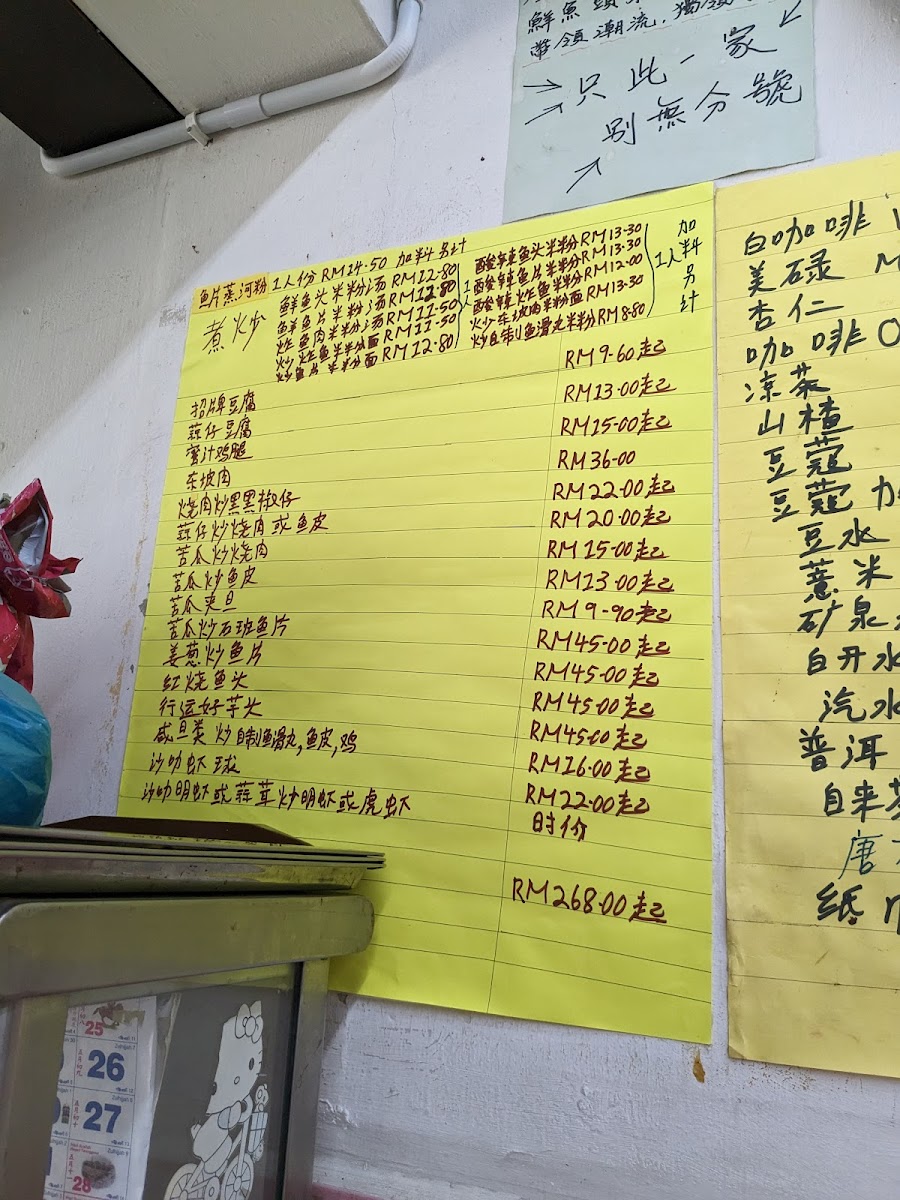 鲜鱼頭
帶領潮流.獨領
只此一家
别無分號
鱼片蒸河粉 1人份 RM14.50 加料另计
煮炒
鲜鱼头米粉汤 RM12.80
鲜鱼片米粉汤 RM12.80
炸鱼肉米粉汤 RM11.50
炒炸鱼米粉面 RM11.50
炒鱼片米粉面 RM12.80
1人
酸辣鱼头米粉 RM13.30
酸辣鱼片米粉 RM13.30
酸辣炸鱼米粉 RM12.00
炒东坡肉米粉面 RM13.30
炒自制鱼滑丸米粉 RM8.80
1人
加料另计
招牌豆腐 RM9.60起
蒜仔豆腐 RM13.00起
蜜汁鸡腿 RM15.00起
东坡肉 RM36.00
烧肉炒黑黑椒仔 RM22.00起
蒜仔炒烧肉或鱼皮 RM20.00起
苦瓜炒烧肉 RM15.00起
苦瓜炒鱼皮 RM13.00起
苦瓜夹旦 RM9.90起
苦瓜炒石班鱼片 RM45.00起
姜葱炒鱼片 RM45.00起
红烧鱼头 RM45.00起
行运好芋头 RM45.00起
咸旦类 炒自制鱼滑丸,鱼皮,鸡 RM16.00起
沙叻虾球 RM22.00起
沙叻明虾或蒜茸炒明虾或虎虾 时价
RM268.00起
白咖啡
美碌
杏仁
咖啡O
凉茶
山楂
豆蔻
豆蔻 加
豆水
薏米
矿泉
白开水
汽水
普洱
自来茶
唐
纸巾
25
26
27
28